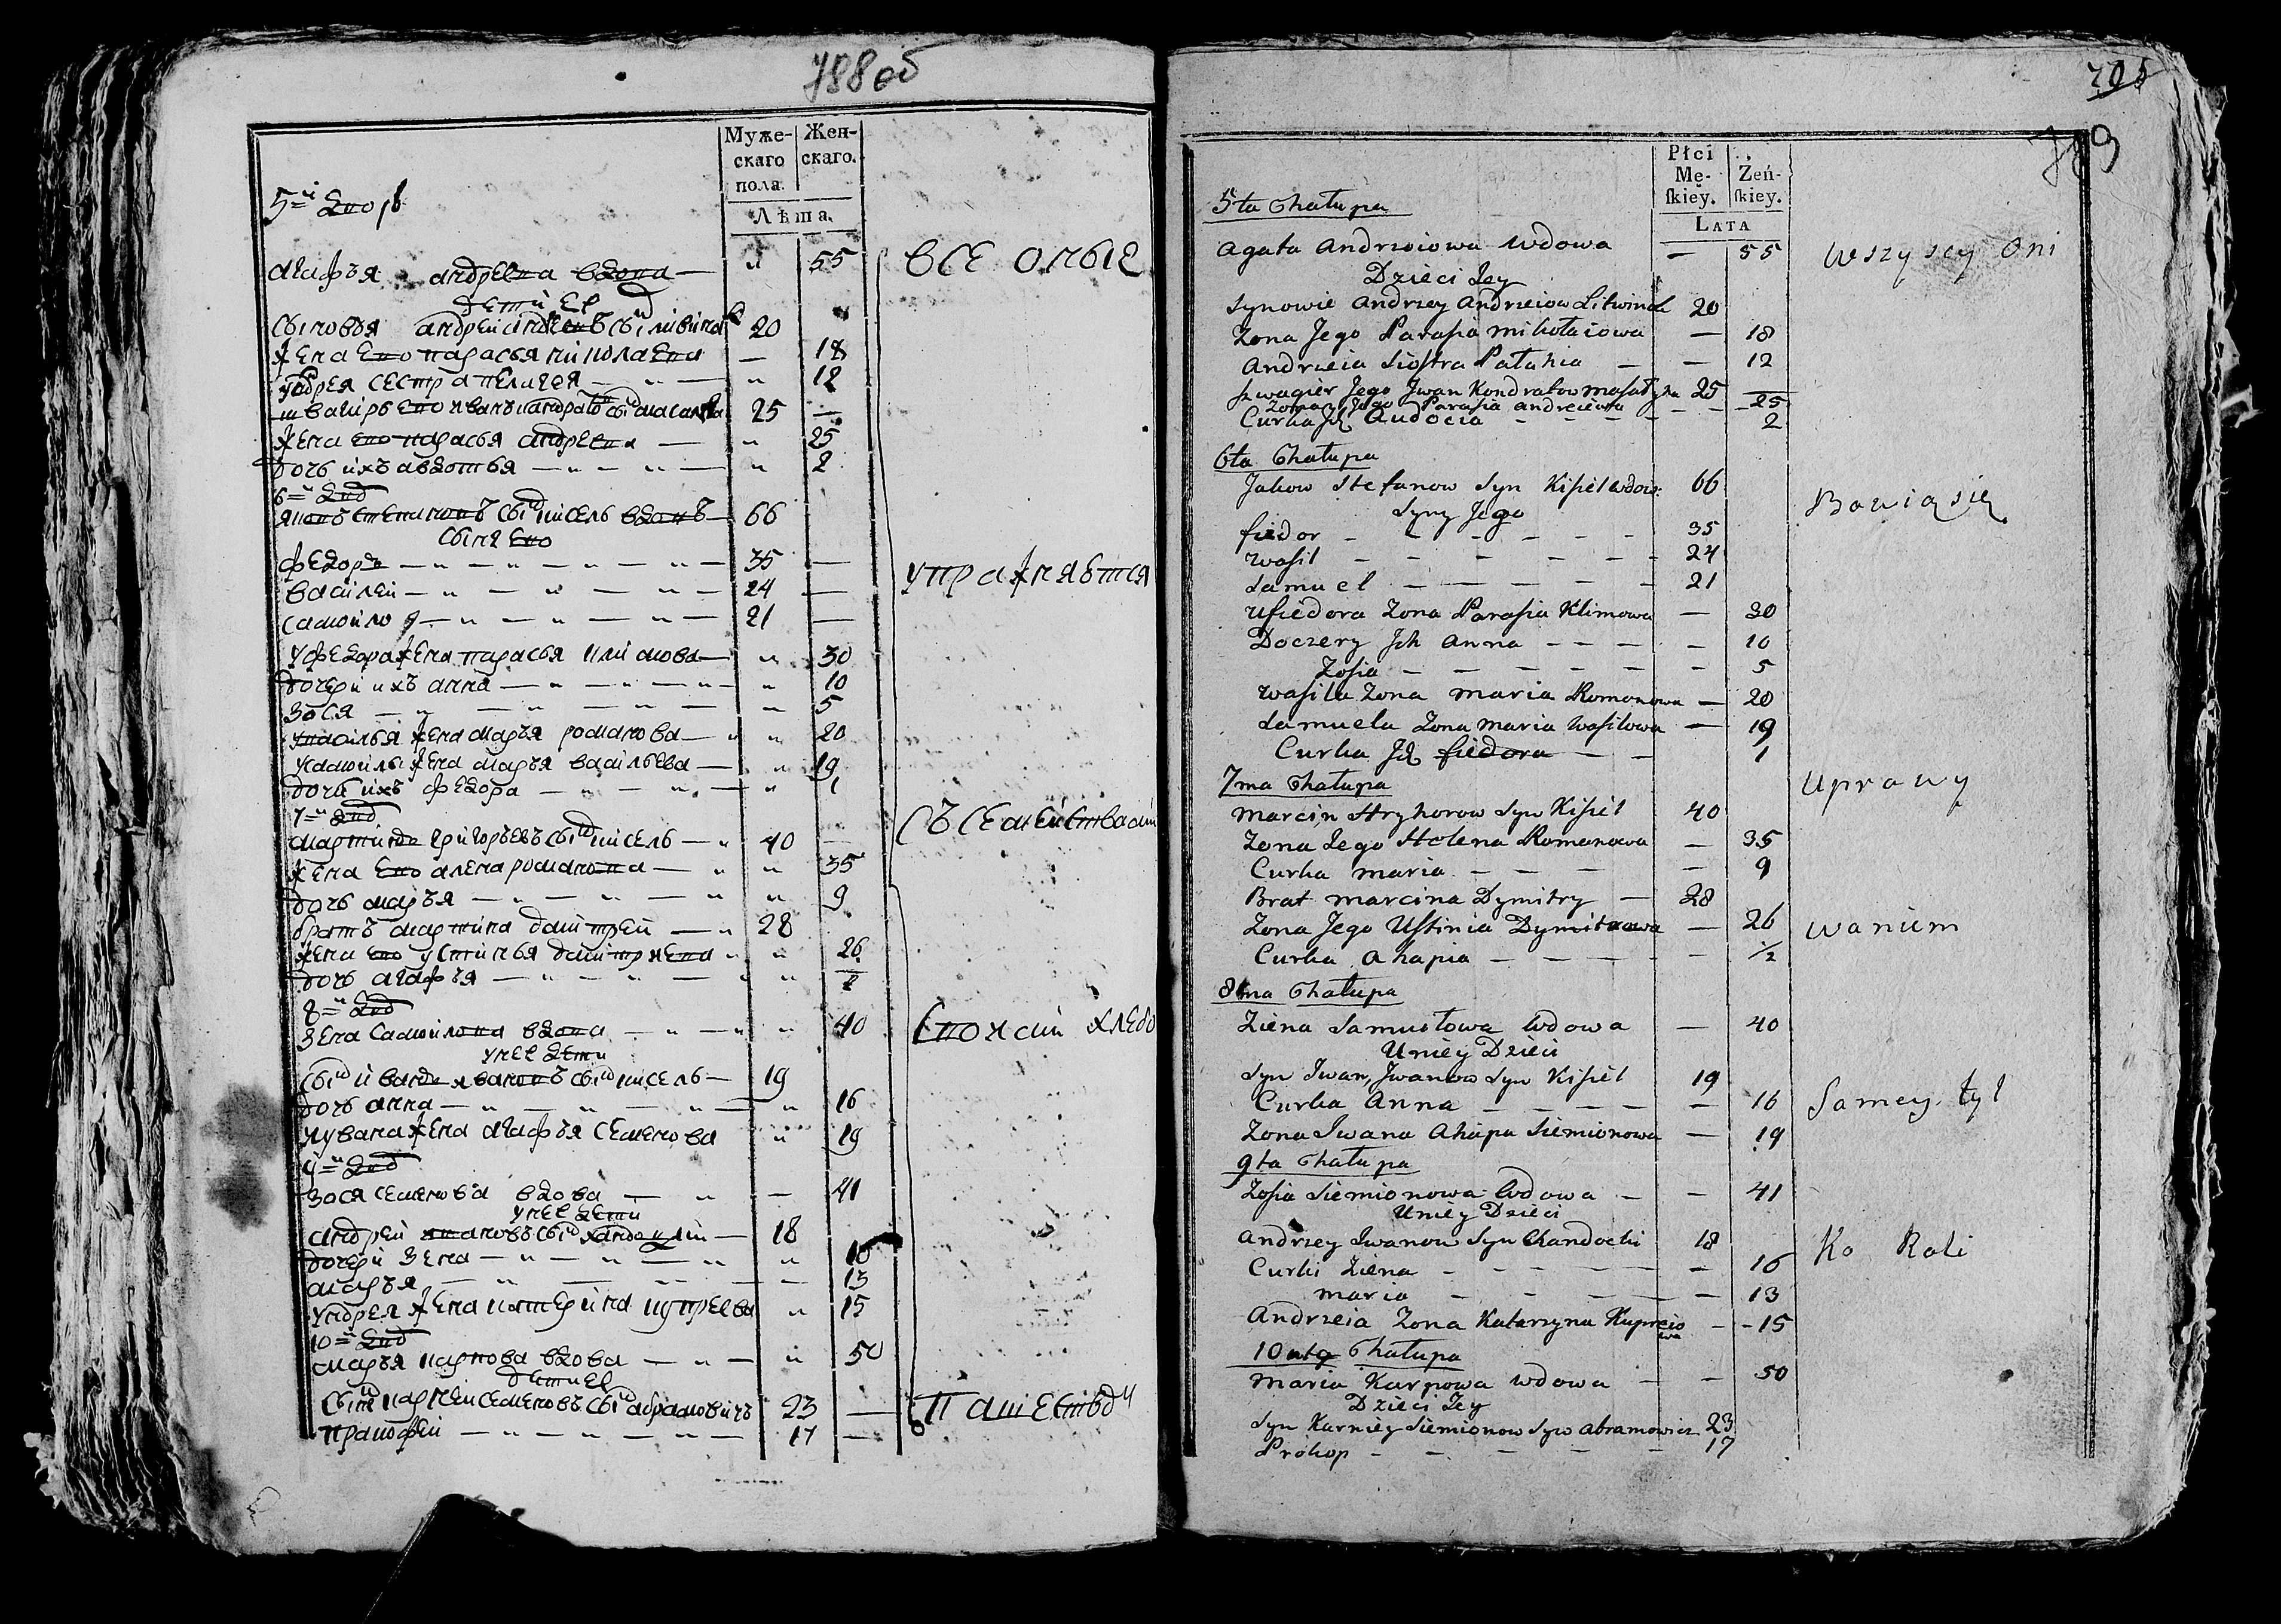 788 об
Муже- Жен-
скаго скаго.
пола.
Лѣта.
5й Двор
агафъя андревна вдова — „ 55
дети Ее
Сыновъя андрей 20
жена Ево парасья николаева — 18
сестра пелагея — „ — „ 12
25 —
жена Ево парасья андреева — „ 25
дочь ихъ авдотья — „ — „ — „ 2
6й Дво
Степановъ сынъ кисель вдовъ — 66
Сыня Ево
федоръ — „ — „ — „ — „ — 35 —
василей — „ — „ — „ — 24 —
самойло — „ — „ — „ — 21 —
У федора жена парасья климова — „ 30
дочери ихъ анна — „ — „ — „ — „ 10
зося — „ — „ — „ — „ 5
жена маръя романова — „ „ 20
жена маръя васильева — „ 19
дочь ихъ федора — „ — „ — „ 1
7й Дво
григоръевъ сынъ кисель — „ 40 —
жена Ево алена романова — „ „ 35
дочь маръя — „ — „ — „ „ 9
братъ мартина дмитрей — „ 28
жена Ево устинья „ „ 26
дочь агафъя — „ — „ — „ „
8й Дво
зена самойлова вдова — „ — „ „ 40
у нее дети
Сынъ сынъ кисель — 19
дочь анна — „ — „ — „ — „ 16
жена агафъя Семенова „ 19
9й Дво
Зося семенова вдова — „ — 41
у нее дети
андрей ивановъ сынъ — 18
дочери Зена — „ — „ — „ „ 16
маръя — „ — „ — 13
жена катерина купреева „ 15
10й Дво
маръя карпова вдова — „ — „ 50
дети ее
сынъ карней семеновъ сынъ абрамовичъ 23 —
прокофей — „ — „ — „ — 17 —
все оные
упражняются
съ семействами
своими хлебо
пашеством
705
789
Płci
Mę- Żeń-
ſkiey. ſkiey.
LATA
5ta Chałupa
Agata Andrzeiowa Wdowa — 55
Dzieci Jey
Synowie Andrzey Andrzeiow Litwinok 20
Zona Jego Parasia Mikołaiowa — 18
Andrzeia Siostra Pałahia — — 12
Szwagier Jego Jwan Kondratow 25 —
Zona Jego Parasia Andreiewna — — 25
Curka Jch Audocia — — — — 2
6ta Chałupa
Jakow Stefanow Syn Kisiel wdow: 66
Syny Jego
fiedor — — — — — — 35
Wasil — — — — — — 24
Samuel — — — — — 21
U fiedora Zona Parasia Klimowa — 30
Doczery Jch Anna — — — — 10
Zosia — — — — — — 5
Wasila Zona Maria Romanowa — 20
Samuela Zona Maria Wasilowa — 19
Curka Jch fiedora — — 1
7ma Chałupa
Marcin Hryhorow Syn Kisiel 40
Zona Jego Helena Romanowa — 35
Curka Maria — — — — 9
Brat Marcina Dymitry — 28
Zona Jego Ustinia Dymitrowa — 26
Curka Ahapia — — — — — ½
8ma Chałupa
Ziena Samułowa Wdowa — 40
U niey Dzieci
Syn Jwan, Jwanow Syn Kisiel 19
Curka Anna — — — — — 16
Zona Jwana Ahapa Siemionowa — 19
9ta Chałupa
Zosia Siemionowa Wdowa — — 41
U niey Dzieci
Andrzey Jwanow Syn Chandocki 18
Curki Ziena — — — — — — 16
Maria — — — — — 13
Andrzeia Zona Katarzyna Kupreio
wa — — 15
10ta Chałupa
Maria Karpowa Wdowa — — 50
Dzieci Jey
Syn Karniey Siemionow Syn Abramowicz 23
Prokop — — — — — — 17
Wszyscy Oni
Bawią się
Uprawy
waniem
Samey tyl
Ko Roli